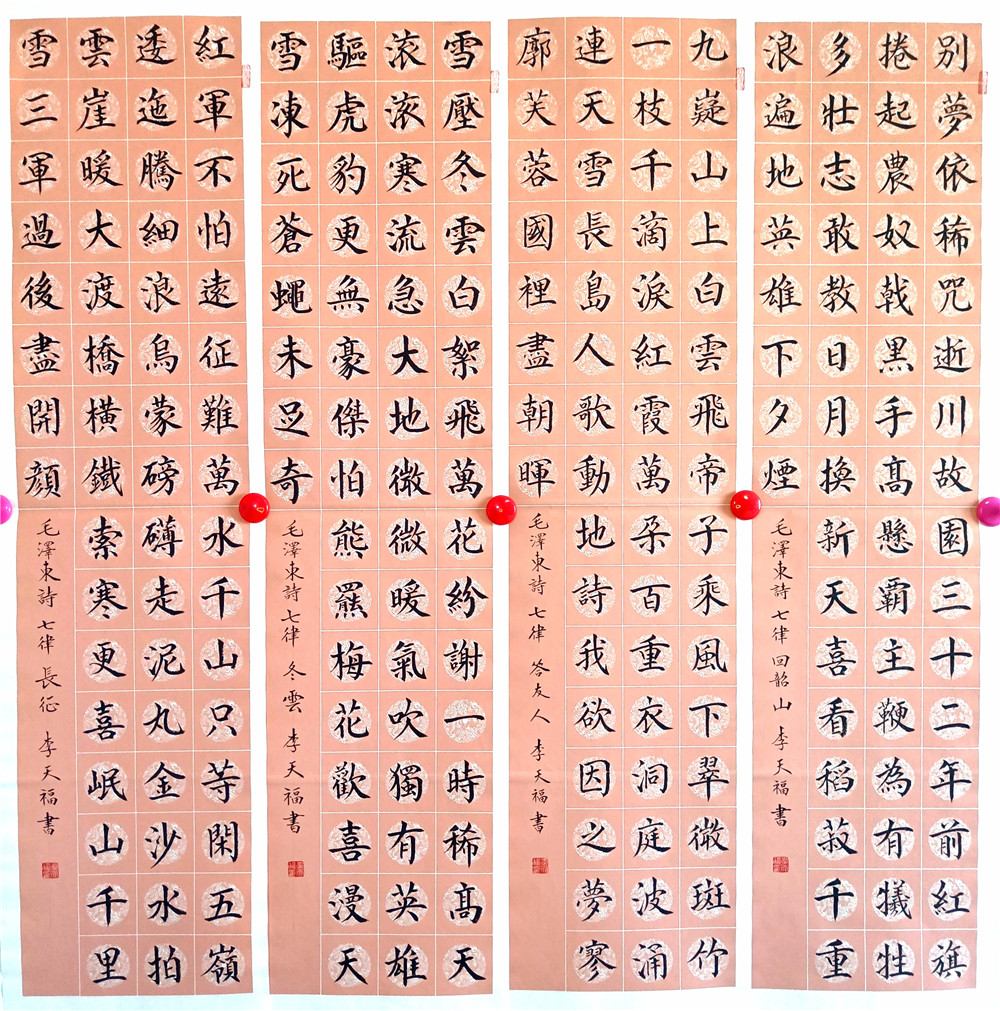 别夢依稀咒逝川故園三十二年前紅旗
捲起農奴戟黑手髙懸霸主鞭為有犧牲
多壯志敢教日月換新天喜看稻菽千重
浪遍地英雄下夕煙
毛澤東詩 七律 回韶山 李天福書
九嶷山上白雲飛帝子乘風下翠微斑竹
一枝千滴淚紅霞萬朵百重衣洞庭波涌
連天雪長島人歌動地詩我欲因之夢寥
廓芙蓉國裡盡朝暉
毛澤東詩 七律 答友人 李天福書
雪壓冬雲白絮飛萬花紛謝一時稀髙天
滚滚寒流急大地微微暖氣吹獨有英雄
驅虎豹更無豪傑怕熊羆梅花歡喜漫天
雪凍死蒼蠅未足奇
毛澤東詩 七律 冬雲 李天福書
紅軍不怕遠征難萬水千山只等閑五嶺
逶迤騰細浪烏蒙磅礴走泥丸金沙水拍
雲崖暖大渡橋橫鐵索寒更喜岷山千里
雪三軍過後盡開顏
毛澤東詩 七律 長征 李天福書